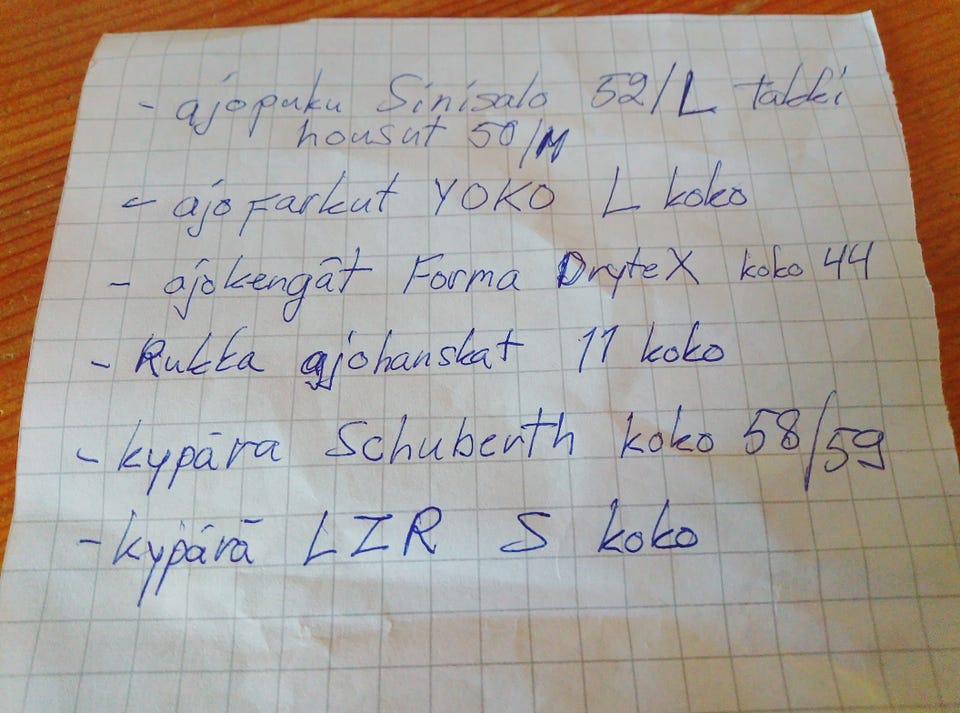 - ajopuku Sinisalo 52/L takki
housut 50/M
- ajofarkut YOKO L koko
- ajokengät Forma Drytex koko 44
- Rukka ajohanskat 11 koko
- kypärä Schuberth koko 58/59
- kypärä LZR S koko